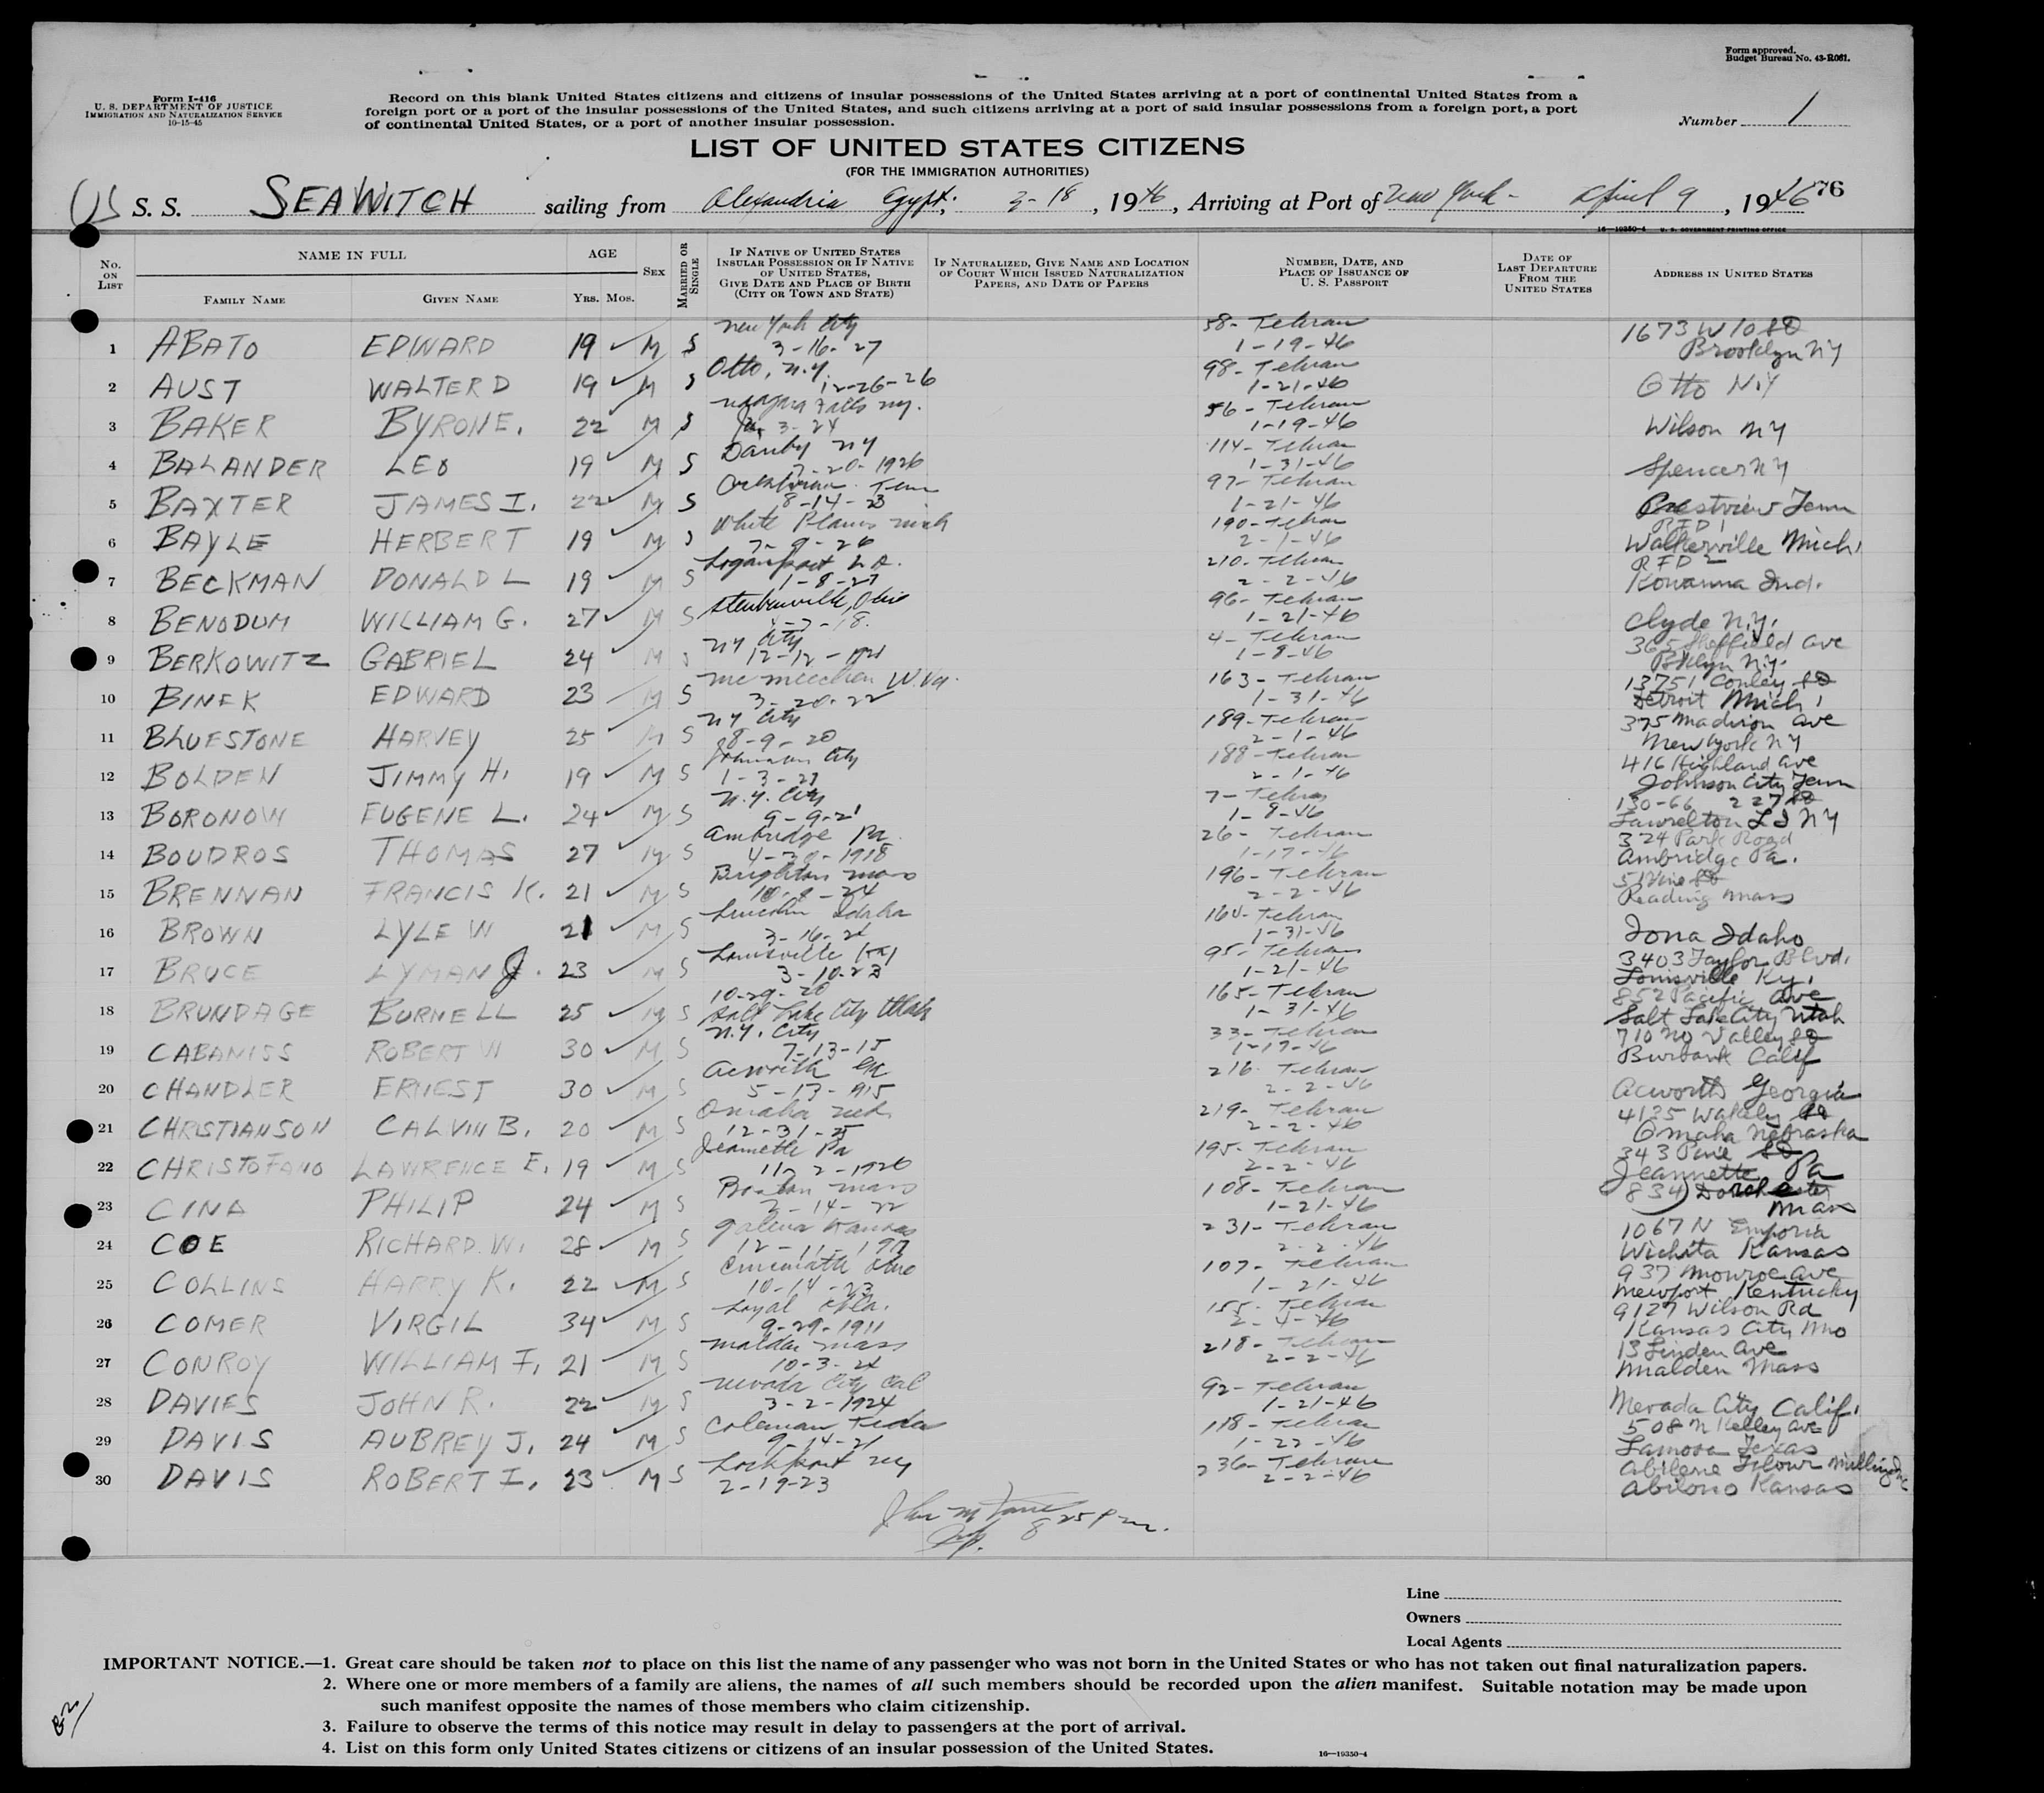 Form approved.
Budget Bureau No. 43-R081.
Form I-416
U. S. DEPARTMENT OF JUSTICE
IMMIGRATION AND NATURALIZATION SERVICE
10-15-45
Record on this blank United States citizens and citizens of insular possessions of the United States arriving at a port of continental United States from a
foreign port or a port of the insular possessions of the United States, and such citizens arriving at a port of said insular possessions from a foreign port, a port
of continental United States, or a port of another insular possession.
Number 1
LIST OF UNITED STATES CITIZENS
(FOR THE IMMIGRATION AUTHORITIES)
US S. S. SEAWITCH sailing from Alexandria Egypt; 3-18, 1946, Arriving at Port of New York - April 9, 1946 76
16—19350-4 U. S. GOVERNMENT PRINTING OFFICE
No. ON LIST
NAME IN FULL
FAMILY NAME
GIVEN NAME
AGE
YRS. MOS.
SEX
MARRIED OR SINGLE
IF NATIVE OF UNITED STATES INSULAR POSSESSION OR IF NATIVE OF UNITED STATES, GIVE DATE AND PLACE OF BIRTH (CITY OR TOWN AND STATE)
IF NATURALIZED, GIVE NAME AND LOCATION OF COURT WHICH ISSUED NATURALIZATION PAPERS, AND DATE OF PAPERS
NUMBER, DATE, AND PLACE OF ISSUANCE OF U. S. PASSPORT
DATE OF LAST DEPARTURE FROM THE UNITED STATES
ADDRESS IN UNITED STATES
1 ABATO EDWARD 19 M S New York City 3-16-27 58- Tehran 1-19-46 1673 W 10 St Brooklyn NY
2 AUST WALTER D 19 M S Otto, N.Y. 12-26-26 98- Tehran 1-21-46 Otto N.Y
3 BAKER BYRON E. 22 M S Niagara Falls NY. 3-24 56- Tehran 1-19-46 Wilson NY
4 BALANDER LEO 19 M S Danby NY 7-20-1926 114- Tehran 1-31-46 Spencer NY
5 BAXTER JAMES I. 22 M S Tenn 8-14-23 97- Tehran 1-21-46 Crestview Tenn
6 BAYLE HERBERT 19 M S White Plains Mich 7-9-26 190- Tehran 2-1-46 RFD 1 Walkerville Mich
7 BECKMAN DONALD L 19 M S Logansport 1-8-27 210- Tehran 2-2-46 RFD 2 Kewanna Ind.
8 BENODUM WILLIAM G. 27 M S Steubenville, Ohio 18. 96- Tehran 1-21-46 Clyde N.Y.
9 BERKOWITZ GABRIEL 24 M S NY City 12-12-1921 4- Tehran 1-8-46 365 Sheffield Ave Bklyn N.Y.
10 BINEK EDWARD 23 M S McMeechen W.Va. 3-20-22 163- Tehran 1-31-46 13751 Conley St Detroit Mich
11 BLUESTONE HARVEY 25 M S NY City 8-9-20 189- Tehran 2-1-46 375 Madison Ave New York NY
12 BOLDEN JIMMY H. 19 M S Johnson City 1-3-27 188- Tehran 2-1-46 416 Highland Ave Johnson City Tenn
13 BORONOW EUGENE L. 24 M S N.Y. City 9-9-21 7- Tehran 1-8-46 130-66 227 St Laurelton L I NY
14 BOUDROS THOMAS 27 M S Ambridge Pa. 4-20-1918 26- Tehran 1-17-46 324 Park Road Ambridge Pa.
15 BRENNAN FRANCIS K. 21 M S Brighton Mass 10-9-24 196- Tehran 2-2-46 Reading Mass
16 BROWN LYLE W 21 M S Lincoln Idaho 3-16-24 164- Tehran 1-31-46 Iona Idaho
17 BRUCE LYMAN J. 23 M S Louisville Ky 3-10-23 95- Tehran 1-21-46 3403 Taylor Blvd. Louisville Ky.
18 BRUNDAGE BURNELL 25 M S 10-29-20 Salt Lake City Utah 165- Tehran 1-31-46 852 Pacific Ave Salt Lake City Utah
19 CABANISS ROBERT W 30 M S N.Y. City 7-13-15 33- Tehran 1-17-46 710 No Valley St Burbank Calif
20 CHANDLER ERNEST 30 M S Acworth Ga 5-13-915 216- Tehran 2-2-46 Acworth Georgia
21 CHRISTIANSON CALVIN B. 20 M S Omaha Neb 12-31-25 219- Tehran 2-2-46 4125 Wakely St Omaha Nebraska
22 CHRISTOFANO LAWRENCE E. 19 M S Jeannette Pa 11-2-1926 195- Tehran 2-2-46 343 Pine St Jeannette Pa
23 CINA PHILIP 24 M S Boston Mass 2-14-22 108- Tehran 1-21-46 834 Dorchester Mass
24 COE RICHARD W. 28 M S Galena Kansas 12-11-1917 231- Tehran 2-2-46 1067 N Emporia Wichita Kansas
25 COLLINS HARRY K. 22 M S Cincinnatti Ohio 10-14-23 107- Tehran 1-21-46 937 Monroe Ave Newport Kentucky
26 COMER VIRGIL 34 M S Loyal Okla. 9-29-1911 155- Tehran 2-4-46 9127 Wilson Rd Kansas City Mo
27 CONROY WILLIAM F. 21 M S Malden Mass 10-3-24 218- Tehran 2-2-46 13 Linden Ave Malden Mass
28 DAVIES JOHN R. 22 M S Nevada City Cal 3-2-1924 92- Tehran 1-21-46 Nevada City Calif.
29 DAVIS AUBREY J. 24 M S Coleman 9-14-21 118- Tehran 1-22-46 508 N Kelley Ave Lamesa Texas
30 DAVIS ROBERT I. 23 M S Lockport NY 2-19-23 236- Tehran 2-2-46 Abilene Flour Milling Abilene Kansas
8 25 P m.
Line
Owners
Local Agents
IMPORTANT NOTICE.—1. Great care should be taken not to place on this list the name of any passenger who was not born in the United States or who has not taken out final naturalization papers.
2. Where one or more members of a family are aliens, the names of all such members should be recorded upon the alien manifest. Suitable notation may be made upon
such manifest opposite the names of those members who claim citizenship.
3. Failure to observe the terms of this notice may result in delay to passengers at the port of arrival.
4. List on this form only United States citizens or citizens of an insular possession of the United States.
16—19350-4